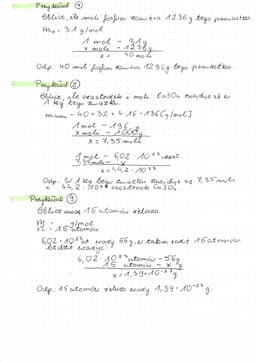 Przykład 7
Oblicz, ile moli fosforu zawiera 1236g tego pierwiastka.
Mₚ = 31 g/mol
1 mol - 31g
x moli - 1236g
x = 40 moli
Odp. 40 moli fosforu zawiera 1236g tego pierwiastka
Przykład 8
Oblicz, ile cząsteczek i moli CaSO₄ znajduje się w
1 kg tego związku.
= 40 + 32 + 4·16 = 136 [g/mol]
1 mol - 136
x moli - 1000g
x = 7,35 moli
1 mol - 6,02 · 10²³ cząst.
7,35 moli - x
x = 44,2 · 10²³
Odp. W 1 kg tego związku znajduje się 7,35 moli
i 44,2 · 10²³ cząsteczek CaSO₄
Przykład 9
Oblicz masę 15 atomów żelaza.
g/mol
15 atomów
6,02 · 10²³ at waży 56g, a takim razie 15 atomów
będzie ważyć:
6,02 · 10²³ atomów - 56g
15 atomów - x
x = 1,39 · 10⁻²¹ g
Odp. 15 atomów żelaza waży 1,39 · 10⁻²¹ g.